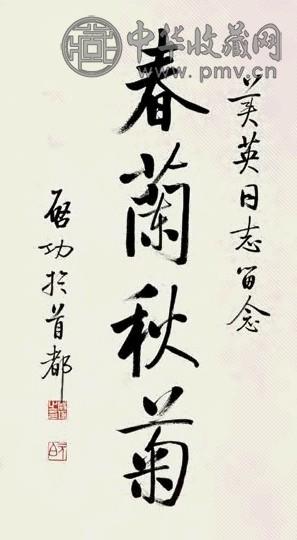 中华收藏网
www.pmv.cn
美英同志留念
春蘭秋菊
啓功於首都